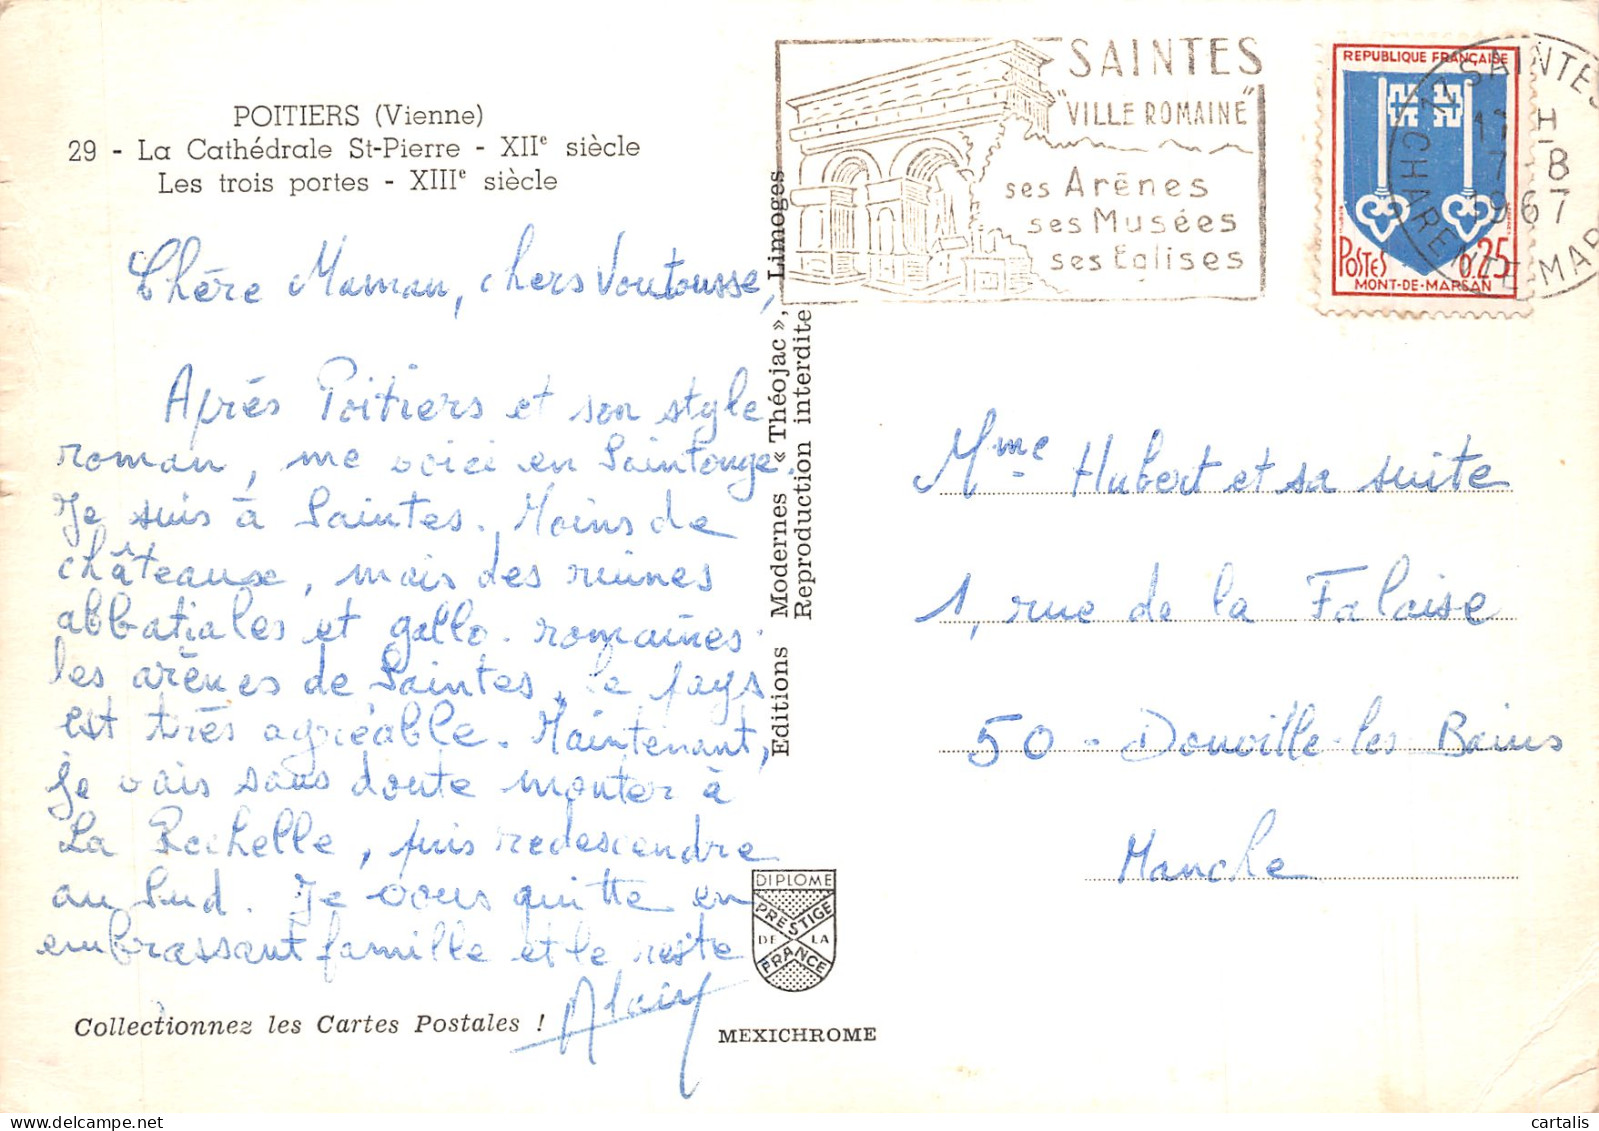 POITIERS (Vienne)
29 - La Cathédrale St-Pierre - XIIe siècle
Les trois portes - XIIIe siècle
Chère Maman, chers Voutousse,
Après Poitiers et son style
roman, me voici en Saintonge.
Je suis à Saintes. Moins de
châteaux, mais des ruines
abbatiales et gallo-romaines.
les arènes de Saintes, le pays
est très agréable. Maintenant,
je vais sans doute monter à
La Rochelle, puis redescendre
au Sud. Je vous quitte en
embrassant famille et le reste
Alain
Collectionnez les Cartes Postales !
Editions Modernes « Théojac », Limoges
Reproduction interdite
DIPLOME
PRESTIGE
DE LA
FRANCE
MEXICHROME
SAINTES
"VILLE ROMAINE"
ses Arènes
ses Musées
ses Eglises
REPUBLIQUE FRANÇAISE
POSTES 0,25
MONT-DE-MARSAN
SAINTES
17 H
7-8
1967
CHARENTE MAR
Mme Hubert et sa suite
1, rue de la Falaise
50 - Donville-les-Bains
Manche
cartalis